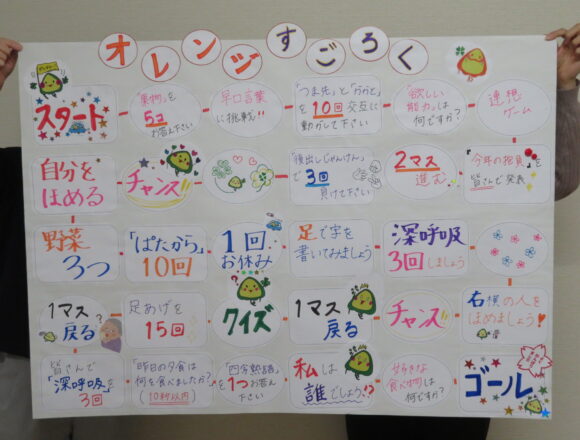 オレンジすごろく
スタート
「果物」を
5コ
お答え下さい
早口言葉
に挑戦!!
「つま先」と「かかと」
を10回交互に
動かして下さい
「欲しい
能力」は
何ですか?
連想
ゲーム
自分を
ほめる
チャンス
「後出しじゃんけん」
で3回
負けて下さい
2マス
進む
「今年の抱負」を
皆さんで発表
野菜
3つ
「ぱたから」
10回
1回
お休み
足で字を
書いてみましょう
深呼吸
3回しましょう
1マス
戻る
足あげを
15回
クイズ
1マス
戻る
チャンス
右横の人を
ほめましょう!
皆さんで
「深呼吸」を
3回
「昨日の夕食は
何を食べましたか?
(10秒以内)
「四字熟語」
を1つお答え
下さい
私は
誰でしょう!?
好きな
食べ物は
何ですか?
ゴール